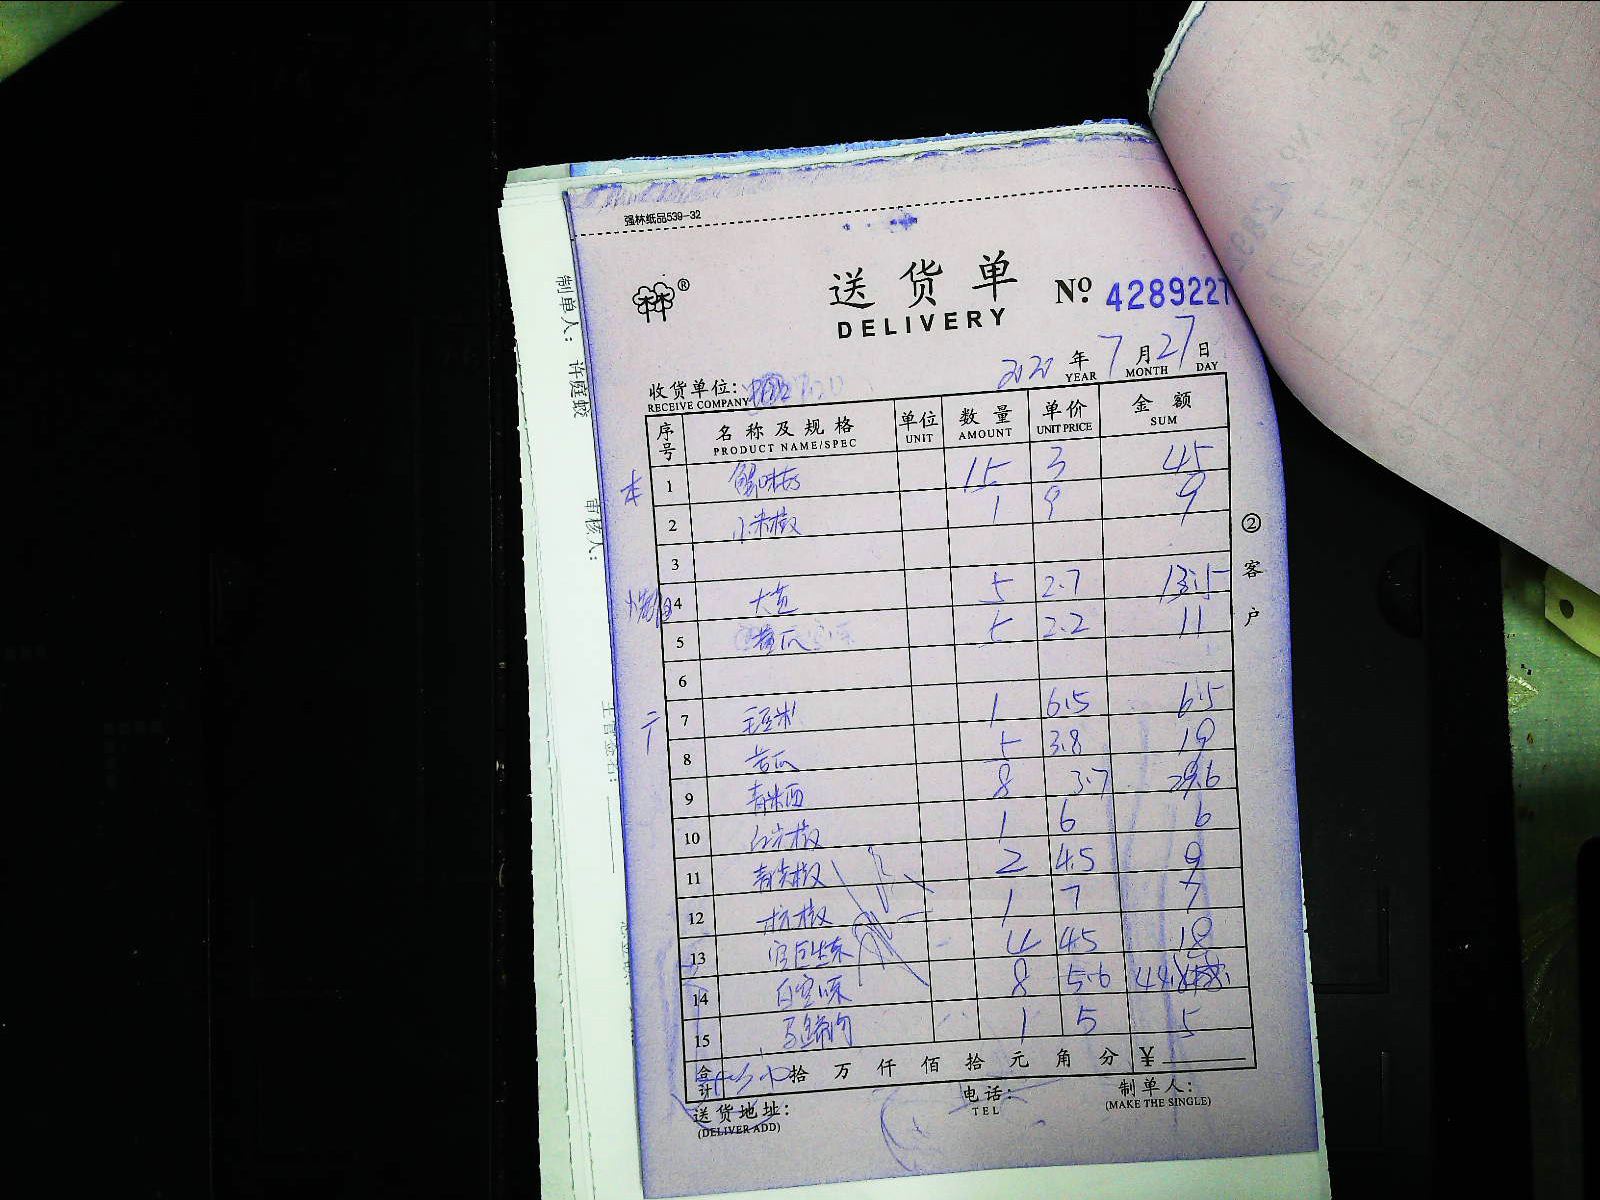 强林纸品539-32
®
送货单
DELIVERY
№ 4289227
2020 年 7 月 27 日
YEAR MONTH DAY
收货单位:
RECEIVE COMPANY
序号 名称及规格 单位 数量 单价 金额
PRODUCT NAME/SPEC UNIT AMOUNT UNIT PRICE SUM
本 1 蟹味菇 15 3 45
2 小米椒 1 9 9
3
4 大葱 5 2.7 13.5
5 黄瓜 5 2.2 11
6
7 毛豆米 1 6.5 6.5
8 苦瓜 5 3.8 19
9 青米西 8 3.7 29.6
10 红尖椒 1 6 6
11 青尖椒 2 4.5 9
12 杭椒 1 7 7
13 4 4.5 18
14 8 5.6 44.8
15 1 5 5
合计 拾 万 仟 佰 拾 元 角 分 ¥
送货地址:
(DELIVER ADD)
电话:
TEL
制单人:
(MAKE THE SINGLE)
② 客户
制单人: 许庭蛟
审核人: